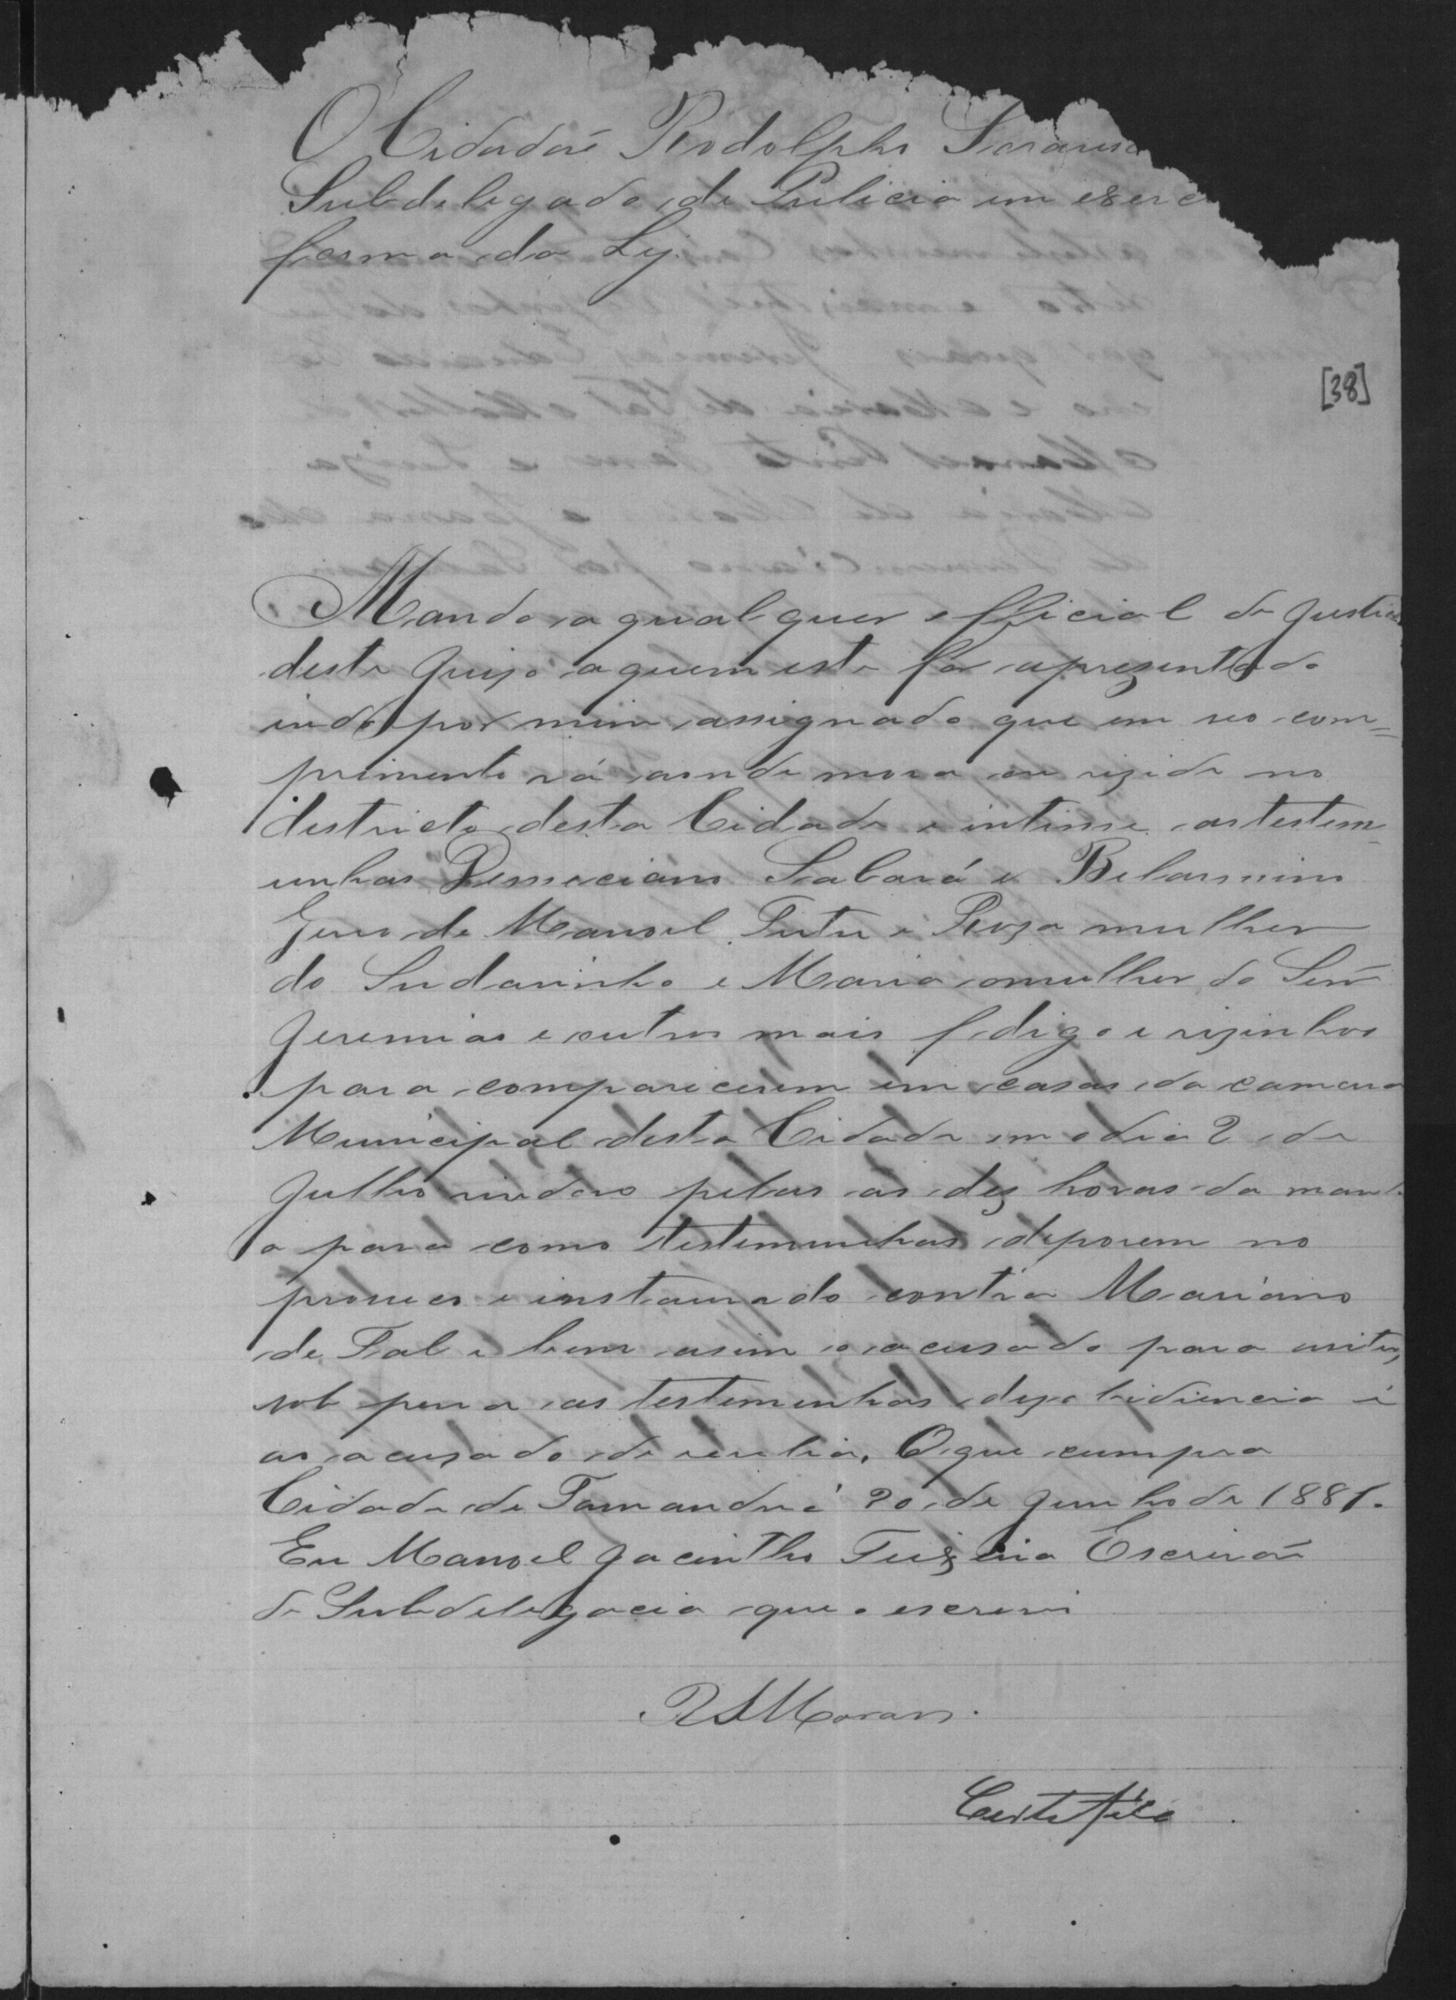 O Cidadão Rodolpho
Subdelegado de Policia em exerc
forma da Ley.
[38]
Mando a qualquer official de justiça
deste juizo a quem este for aprezentado
indo por mim assignado que em seo com=
primento vá aonde mora ou rezide no
destricto desta Cidade e intime as testem-
unhas Sabará e Belarmino
Genro de Manoel e Roza mulher
do e Maria mulher do
Jeremias e outros mais e vizinhos
para comparicerem em casas da camara
Municipal desta Cidade em o dia 2 de
Julho pelas as dez horas da manh
a para como testemunhas deporem no
proceço instaurado contra Mariano
de Tal e bem asim o acusado para
sob pena as testemunhas dezobidiencia e
ao acuzado de revelia. O que cumpra
Cidade de Tamanduá 20 de Junho de 1881.
Eu Manoel Jacintho Teixeira Escrivão
da Subdelegacia que o escrevi
Certifico